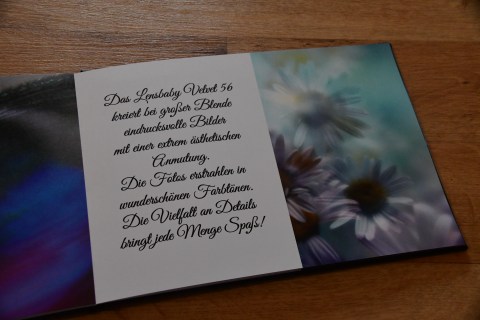 Das Lensbaby Velvet 56
kreiert bei großer Blende
eindrucksvolle Bilder
mit einer extrem ästhetischen
Anmutung.
Die Fotos erstrahlen in
wunderschönen Farbtönen.
Die Vielfalt an Details
bringt jede Menge Spaß!